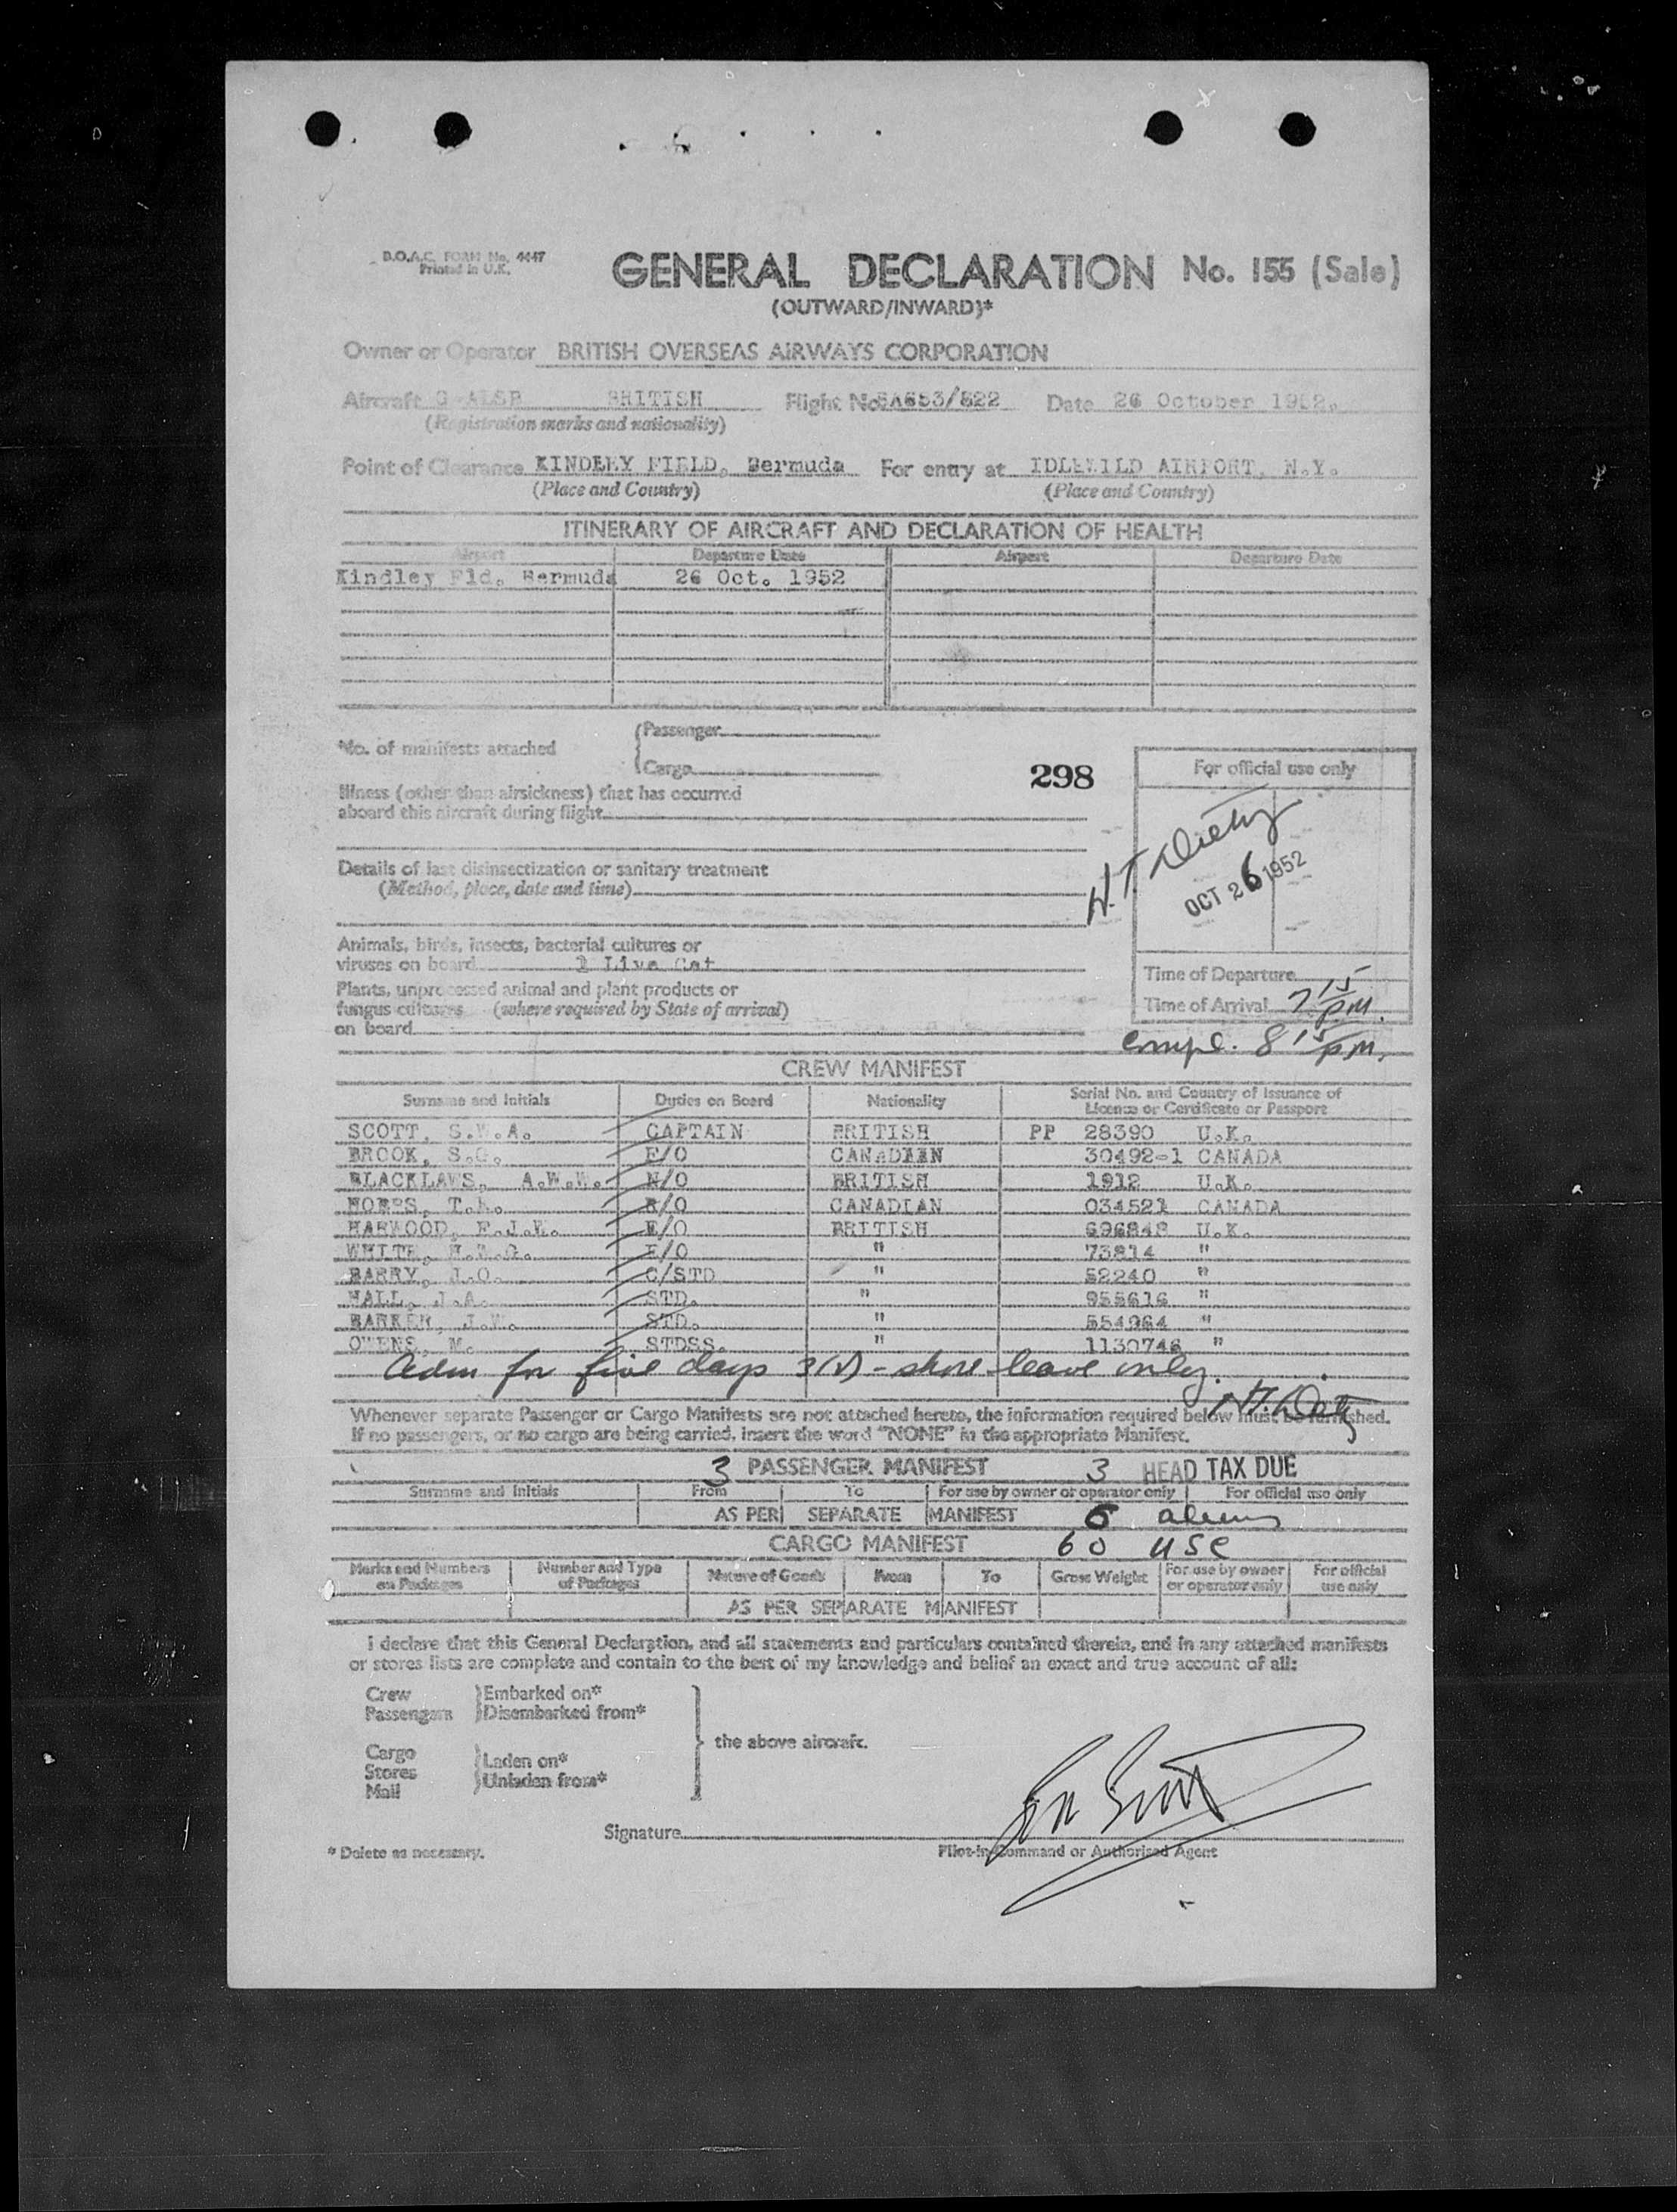 B.O.A.C. FORM No. 4447
Printed in U.K.
GENERAL DECLARATION No. 155 (Sale)
(OUTWARD/INWARD)*
Owner or Operator BRITISH OVERSEAS AIRWAYS CORPORATION
Aircraft BRITISH Flight No. Date 26 October 1952.
(Registration marks and nationality)
Point of Clearance KINDLEY FIELD, Bermuda For entry at IDLEWILD AIRPORT, N.Y.
(Place and Country) (Place and Country)
ITINERARY OF AIRCRAFT AND DECLARATION OF HEALTH
Airport Departure Date Airport Departure Date
Kindley Fld. Bermuda 26 Oct. 1952
No. of manifests attached
Passenger
Cargo
298
For official use only
Illness (other than airsickness) that has occurred
aboard this aircraft during flight
Details of last disinsectization or sanitary treatment
(Method, place, date and time)
OCT 26 1952
Animals, birds, insects, bacterial cultures or
viruses on board 1 Live Cat
Plants, unprocessed animal and plant products or
fungus cultures (where required by State of arrival)
on board
Time of Departure
Time of Arrival 7 15 P.M.
Compl. 8 15 P.M.
CREW MANIFEST
Surname and Initials Duties on Board Nationality Serial No. and Country of Issuance of
Licence or Certificate or Passport
SCOTT, S.W.A. CAPTAIN BRITISH PP 28390 U.K.
BROOK, S.G. F/O 30492-1 CANADA
BLACKLAWS, A.W.W. N/O BRITISH 1912 U.K.
R/O CANADIAN 034521 CANADA
HARWOOD, E/O BRITISH 696848 U.K.
WHITE, E/O " 73814 "
BARRY, J.O. C/STD " 52240 "
HALL, J.A. STD. " 955616 "
BARKER, J.W. STD. " 554964 "
OWENS, M. STDSS. " 1130746 "
Adm for five days 3(5) - shore leave only.
Whenever separate Passenger or Cargo Manifests are not attached hereto, the information required below must be furnished.
If no passengers, or no cargo are being carried, insert the word "NONE" in the appropriate Manifest.
3 PASSENGER MANIFEST 3 HEAD TAX DUE
Surname and Initials From To For use by owner or operator only For official use only
AS PER SEPARATE MANIFEST 6 aliens
CARGO MANIFEST 60 USC
Marks and Numbers on Packages Number and Type of Packages Nature of Goods From To Gross Weight For use by owner or operator only For official use only
AS PER SEPARATE MANIFEST
I declare that this General Declaration, and all statements and particulars contained therein, and in any attached manifests
or stores lists are complete and contain to the best of my knowledge and belief an exact and true account of all:
Crew Embarked on*
Passengers Disembarked from*
the above aircraft.
Cargo
Stores Laden on*
Mail Unladen from*
Signature
* Delete as necessary. Pilot-in-Command or Authorised Agent